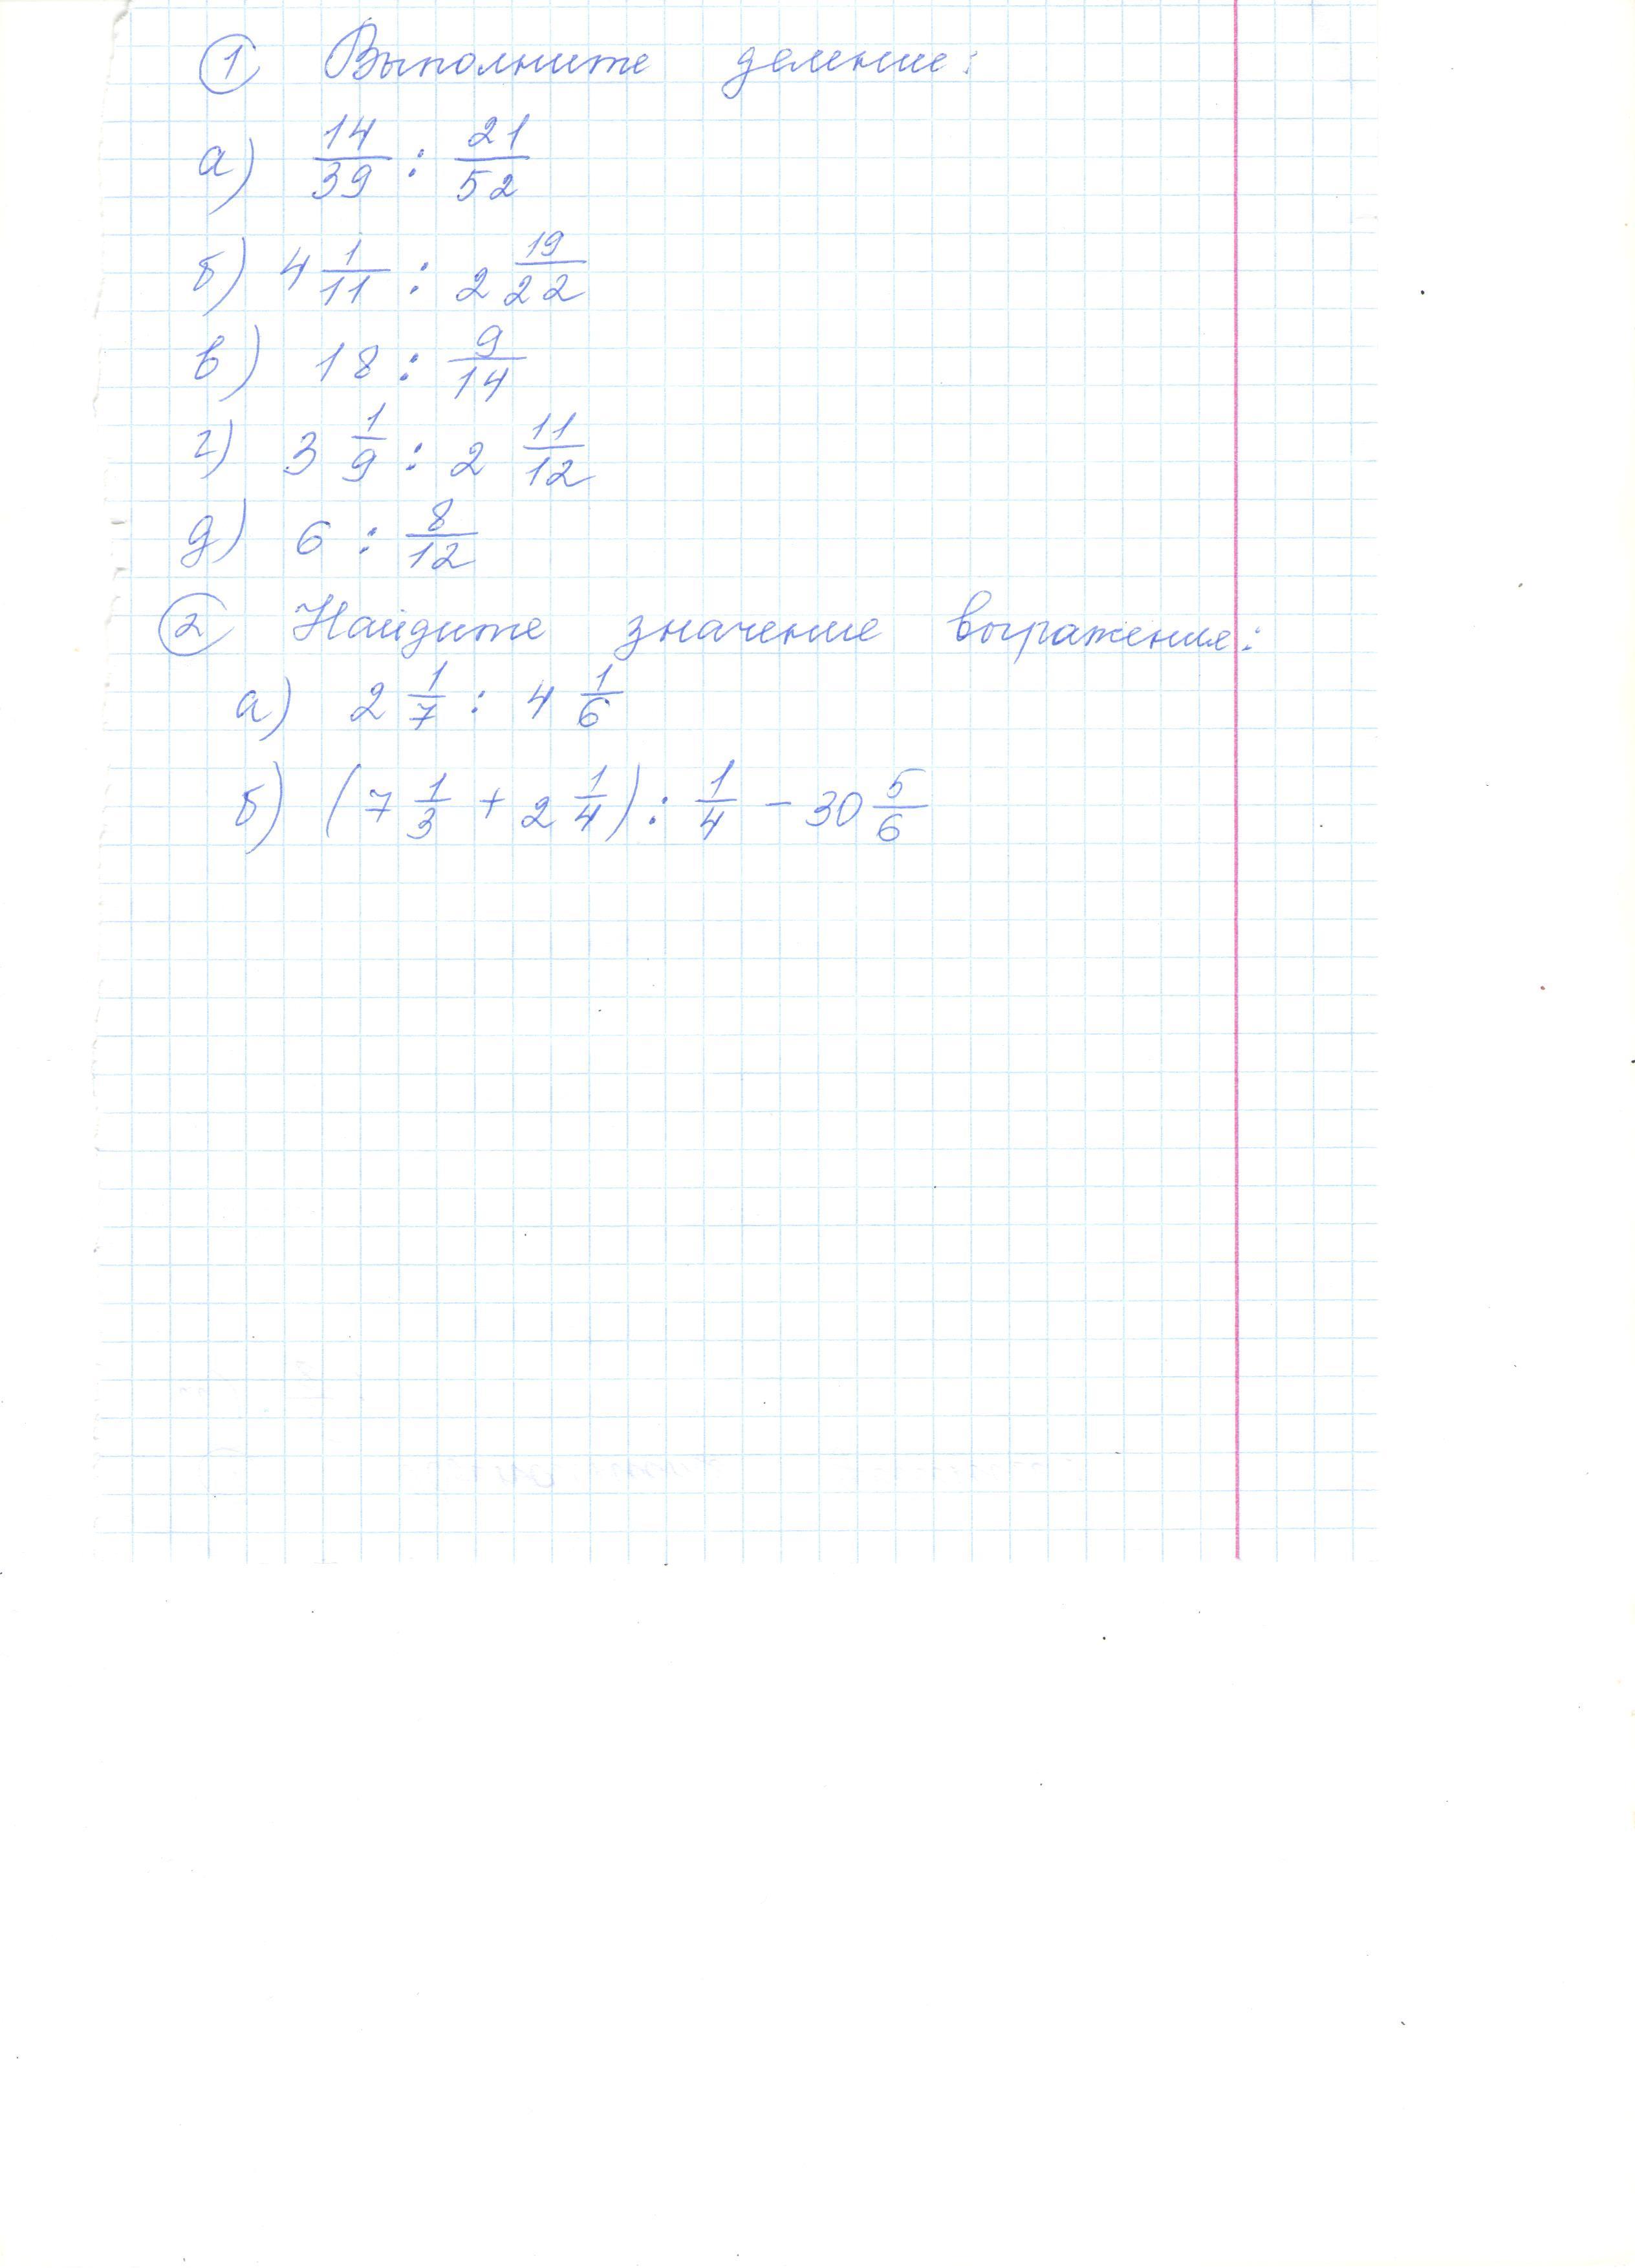 1 Выполните деление:
а) 14/39 : 21/52
б) 4 1/11 : 2 19/22
в) 18 : 9/14
г) 3 1/9 : 2 11/12
д) 6 : 8/12
2 Найдите значение выражения:
а) 2 1/7 : 4 1/6
б) (7 1/3 + 2 1/4) : 1/4 - 30 5/6